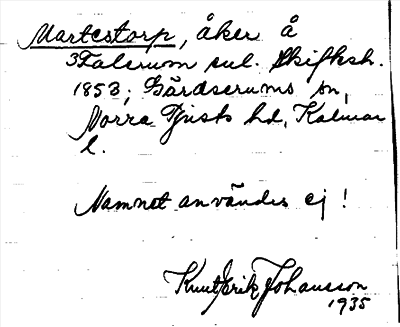 Martestorp, åker å
3 Falerum enl. Skifksh.
1853; Gärdserums sn,
Norra Tjusts hd, Kalmar
l.
Namnet användes ej!
Knut Erik Johansson
1935